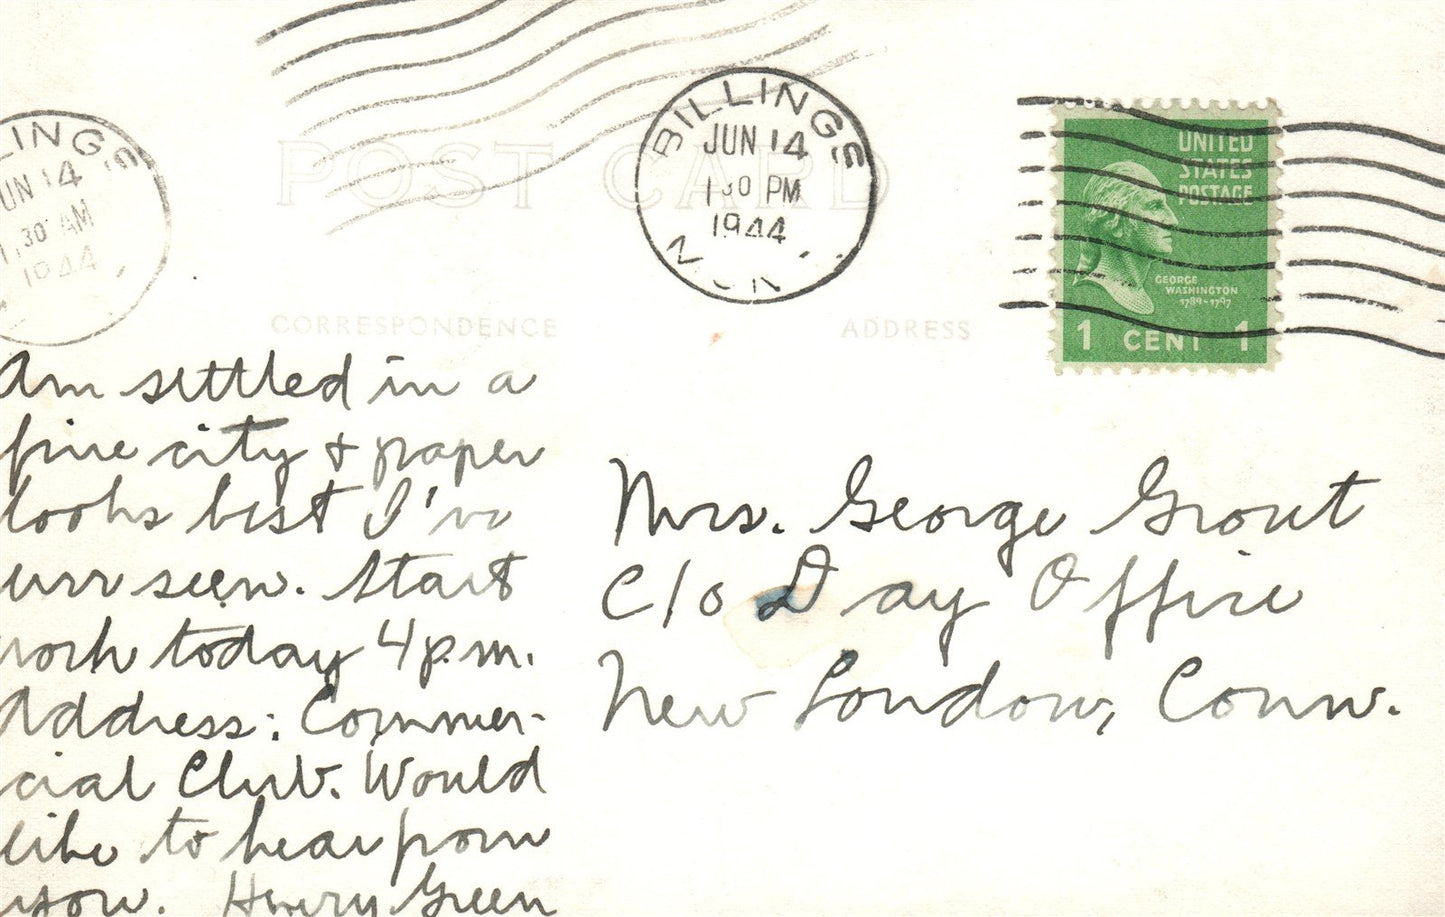 LINGS
UN 14
1 30 AM
1944
BILLINGS
JUN 14
1 30 PM
1944
POST CARD
CORRESPONDENCE
ADDRESS
UNITED
STATES
POSTAGE
GEORGE
WASHINGTON
1789-1797
1 CENT 1
Am settled in a
fine city & paper
looks best I've
ever seen. Start
work today 4 p.m.
Address: Commer-
cial Club. Would
like to hear from
you. Henry Green
Mrs. George Grout
c/o Day Office
New London, Conn.